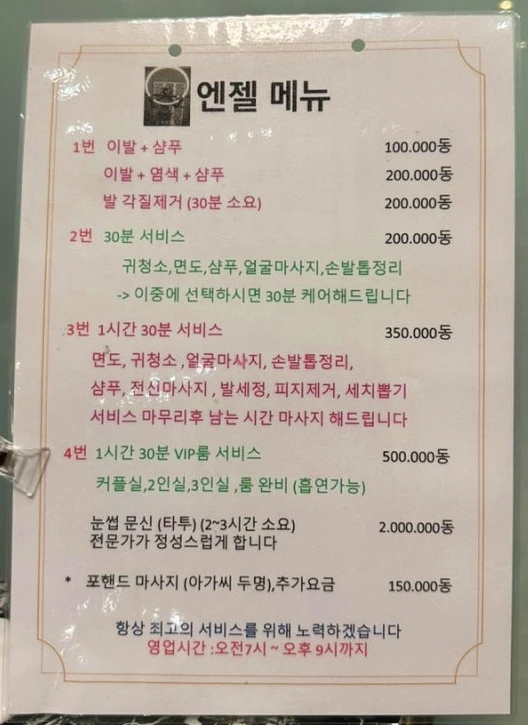 엔젤 메뉴
1번 이발 + 샴푸 100.000동
이발 + 염색 + 샴푸 200.000동
발 각질제거 (30분 소요) 200.000동
2번 30분 서비스 200.000동
귀청소,면도,샴푸,얼굴마사지,손발톱정리
-> 이중에 선택하시면 30분 케어해드립니다
3번 1시간 30분 서비스 350.000동
면도, 귀청소 ,얼굴마사지, 손발톱정리,
샴푸, 전신마사지 , 발세정, 피지제거, 세치뽑기
서비스 마무리후 남는 시간 마사지 해드립니다
4번 1시간 30분 VIP룸 서비스 500.000동
커플실,2인실,3인실 ,룸 완비 (흡연가능)
눈썹 문신 (타투) (2~3시간 소요) 2.000.000동
전문가가 정성스럽게 합니다
* 포핸드 마사지 (아가씨 두명),추가요금 150.000동
항상 최고의 서비스를 위해 노력하겠습니다
영업시간 :오전7시 ~ 오후 9시까지